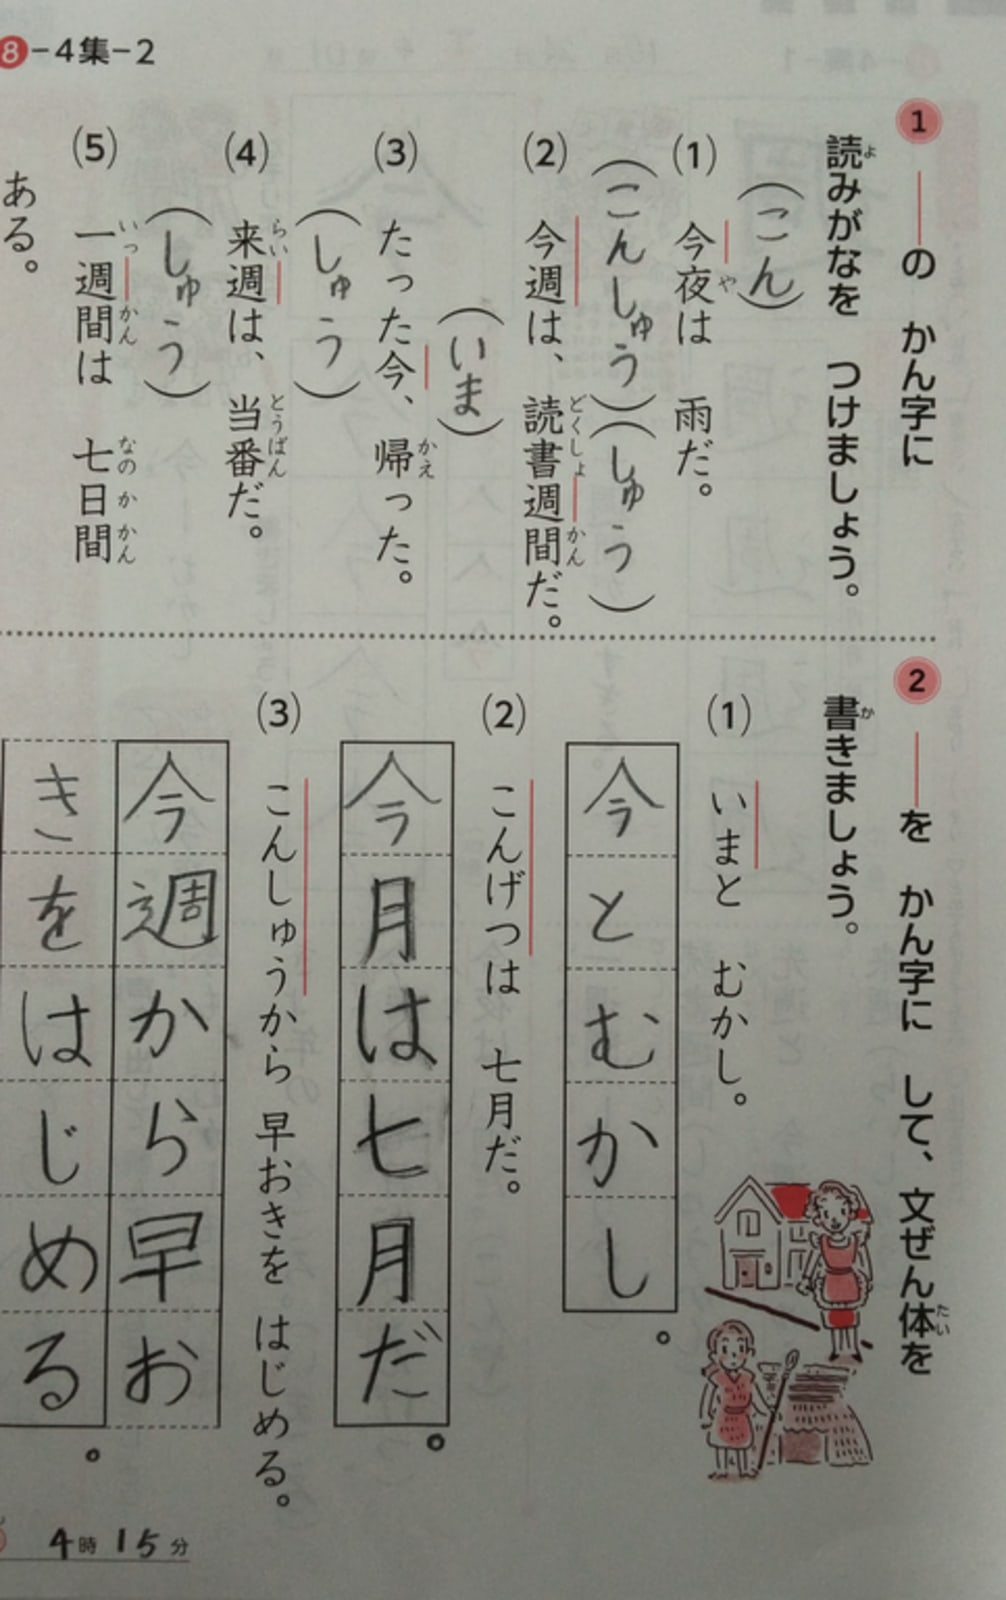 8-4集-2
1 ―の かん字に
読みがなを つけましょう。
よ
(こん)
(1) 今夜は 雨だ。
や
(こんしゅう)(しゅう)
(2) 今週は、読書週間だ。
どくしょ かん
(いま)
(3) たった今、帰った。
かえ
(しゅう)
(4) 来週は、当番だ。
らい とうばん
(しゅう)
(5) 一週間は 七日間
いっ かん なのかかん
ある。
2 ―を かん字に して、文ぜん体を
たい
書きましょう。
か
(1) いまと むかし。
今とむかし。
(2) こんげつは 七月だ。
今月は七月だ。
(3) こんしゅうから 早おきを はじめる。
今週から早お
きをはじめる。
4時15分